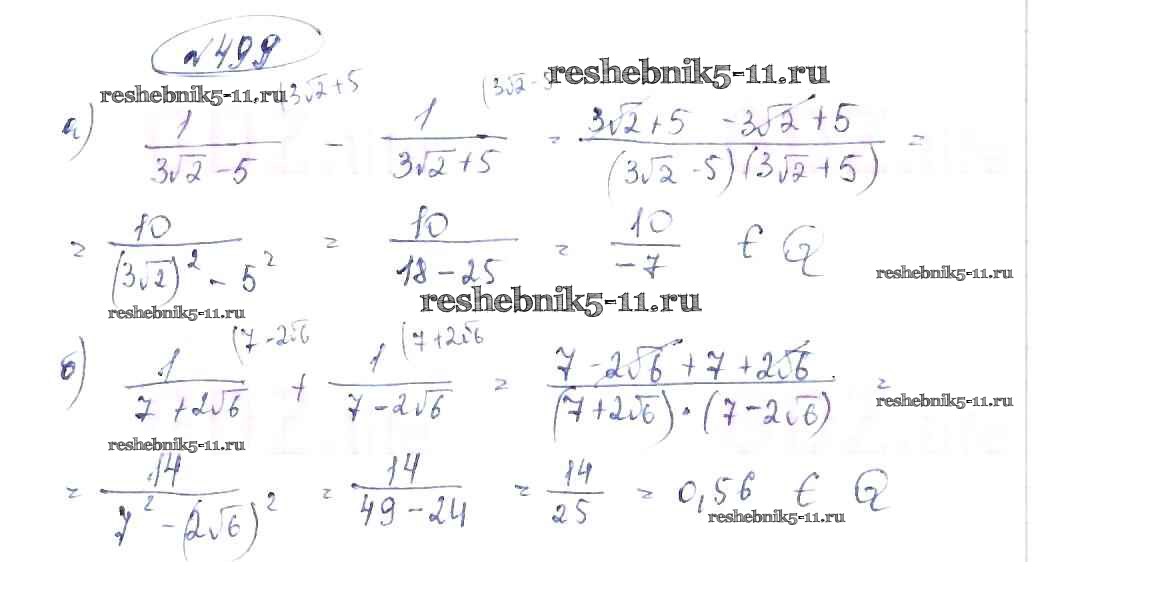 №499
reshebnik5-11.ru
reshebnik5-11.ru
а) 1/(3√2-5) (3√2+5 - 1/(3√2+5) (3√2-5 = (3√2+5 -3√2+5)/((3√2-5)(3√2+5)) =
= 10/((3√2)² - 5²) = 10/(18-25) = 10/-7 ∈ Q
reshebnik5-11.ru
reshebnik5-11.ru
reshebnik5-11.ru
б) 1/(7+2√6) (7-2√6 + 1/(7-2√6) (7+2√6 = (7-2√6+7+2√6)/((7+2√6)·(7-2√6)) =
reshebnik5-11.ru
reshebnik5-11.ru
= 14/(7²-(2√6)²) = 14/(49-24) = 14/25 = 0,56 ∈ Q
reshebnik5-11.ru